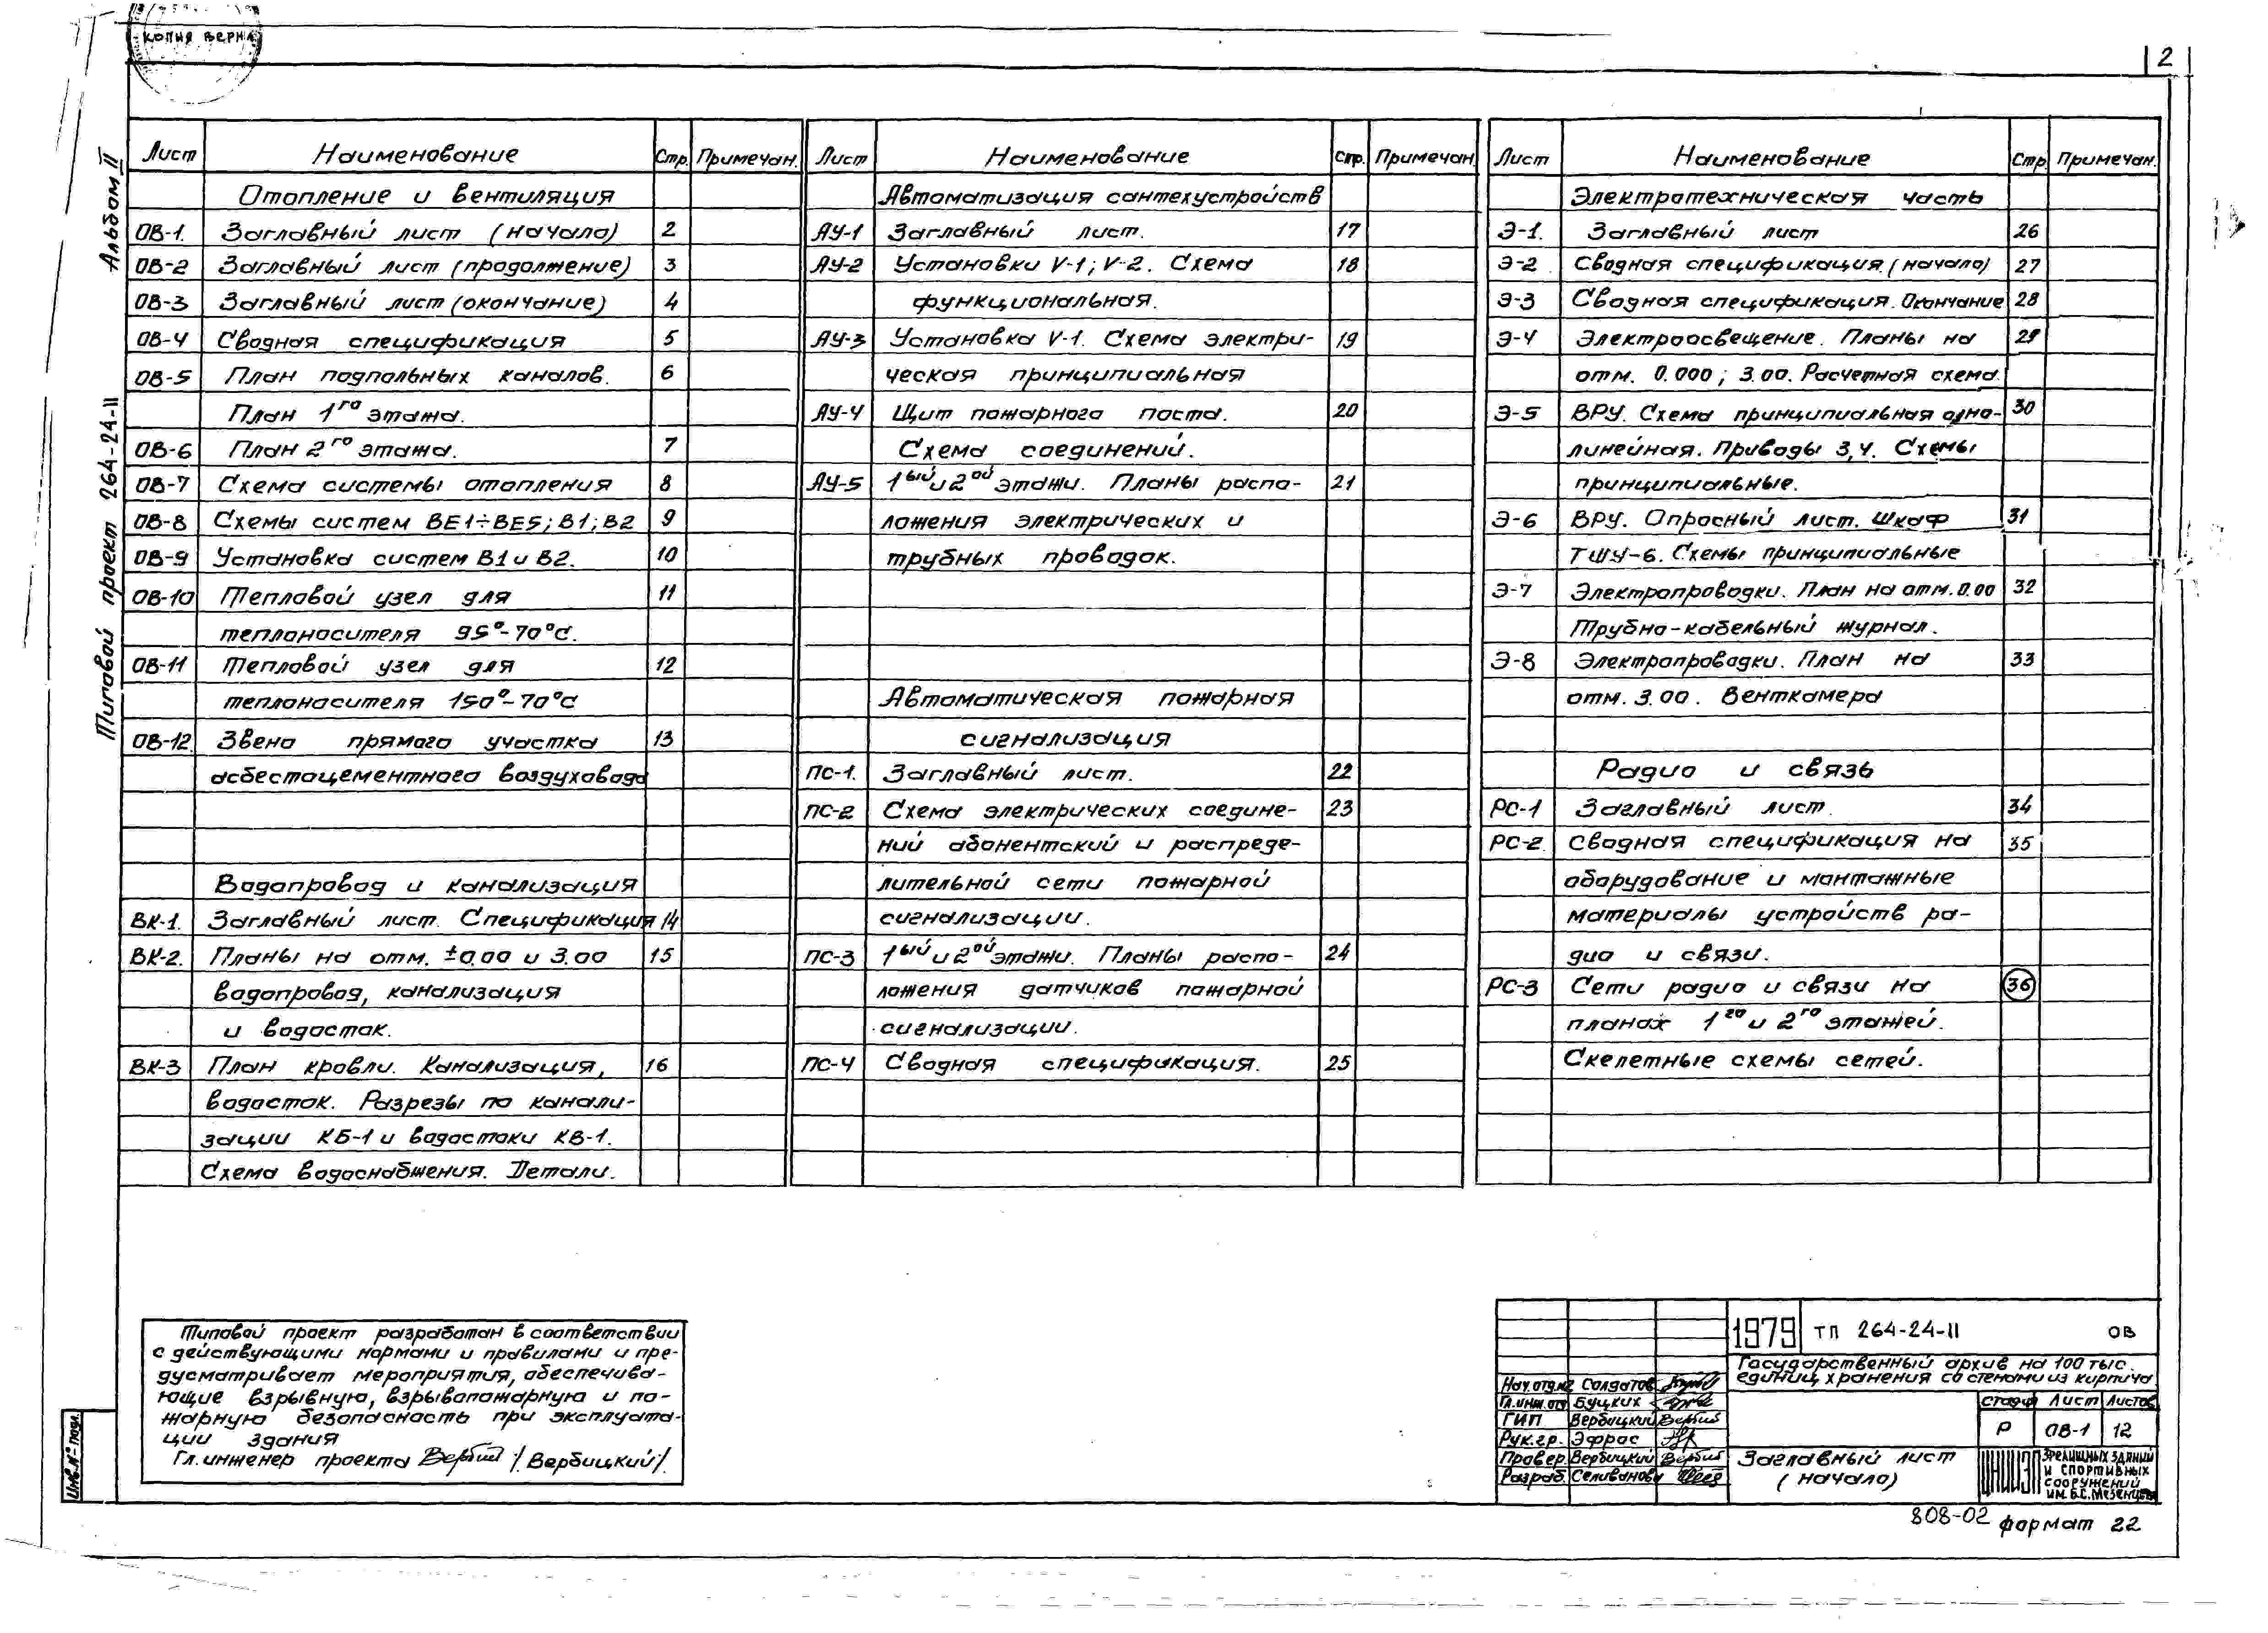 КОПИЯ ВЕРНА
2
Альбом II
Типовой проект 264-24-11
Лист Наименование Стр. Примечан.
Отопление и вентиляция
ОВ-1. Заглавный лист (начало) 2
ОВ-2 Заглавный лист (продолжение) 3
ОВ-3 Заглавный лист (окончание) 4
ОВ-4 Сводная спецификация 5
ОВ-5 План подпольных каналов. 6
План 1го этажа.
ОВ-6 План 2го этажа. 7
ОВ-7 Схема системы отопления 8
ОВ-8 Схемы систем ВЕ1÷ВЕ5; В1; В2 9
ОВ-9 Установка систем В1 и В2. 10
ОВ-10 Тепловой узел для 11
теплоносителя 95°-70°С.
ОВ-11 Тепловой узел для 12
теплоносителя 150°-70°С
ОВ-12. Звено прямого участка 13
асбестоцементного воздуховода
Водопровод и канализация
ВК-1. Заглавный лист. Спецификация 14
ВК-2. Планы на отм. ±0.00 и 3.00 15
водопровод, канализация
и водосток.
ВК-3 План кровли. Канализация, 16
водосток. Разрезы по канали-
зации КБ-1 и водостоки КВ-1.
Схема водоснабжения. Детали.
Лист Наименование Стр. Примечан.
Автоматизация сантехустройств
АУ-1 Заглавный лист. 17
АУ-2 Установки V-1; V-2. Схема 18
функциональная.
АУ-3 Установка V-1. Схема электри- 19
ческая принципиальная
АУ-4 Щит пожарного поста. 20
Схема соединений.
АУ-5 1ый и 2ой этажи. Планы распо- 21
ложения электрических и
трубных проводок.
Автоматическая пожарная
сигнализация
ПС-1. Заглавный лист. 22
ПС-2 Схема электрических соедине- 23
ний абонентский и распреде-
лительной сети пожарной
сигнализации.
ПС-3 1ый и 2ой этажи. Планы распо- 24
ложения датчиков пожарной
сигнализации.
ПС-4 Сводная спецификация. 25
Лист Наименование Стр. Примечан.
Электротехническая часть
Э-1. Заглавный лист 26
Э-2 Сводная спецификация. (начало) 27
Э-3 Сводная спецификация. Окончание 28
Э-4 Электроосвещение. Планы на 29
отм. 0.000; 3.00. Расчетная схема.
Э-5 ВРУ. Схема принципиальная одно- 30
линейная. Приводы 3,4. Схемы
принципиальные.
Э-6 ВРУ. Опросный лист. Шкаф 31
ТШУ-6. Схемы принципиальные
Э-7 Электропроводки. План на отм. 0.00 32
Трубно-кабельный журнал.
Э-8 Электропроводки. План на 33
отм. 3.00. Венткамера
Радио и связь
РС-1 Заглавный лист. 34
РС-2. Сводная спецификация на 35
оборудование и монтажные
материалы устройств ра-
дио и связи.
РС-3 Сети радио и связи на 36
планах 1го и 2го этажей.
Скелетные схемы сетей.
Типовой проект разработан в соответствии
с действующими нормами и правилами и пре-
дусматривает мероприятия, обеспечива-
ющие взрывную, взрывопожарную и по-
жарную безопасность при эксплуата-
ции здания
Гл. инженер проекта /Вербицкий/.
Инв.№ подл.
1979 ТП 264-24-11 ОВ
Государственный архив на 100 тыс.
единиц хранения со стенами из кирпича
Нач.отд.№2 Солдатов
Гл.инж.отд Буцких
ГИП Вербицкий
Рук.гр. Эфрос
Провер. Вербицкий
Разраб. Селиванова
Стадия Лист Листов
Р ОВ-1 12
Заглавный лист
(начало)
ЦНИИЭП
Зрелищных зданий
и спортивных
сооружений
им. Б.С. Мезенцева
808-02 формат 22